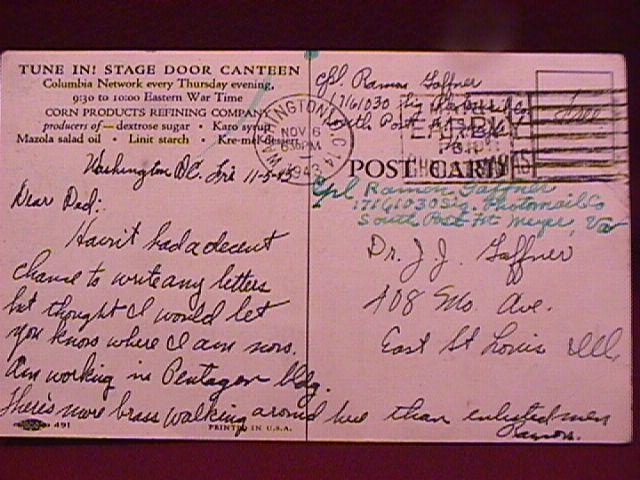 TUNE IN! STAGE DOOR CANTEEN
Columbia Network every Thursday evening,
9:30 to 10:00 Eastern War Time
CORN PRODUCTS REFINING COMPANY
producers of — dextrose sugar • Karo syrup
Mazola salad oil • Linit starch • Kre-mel dessert
Washington DC. Fri 11-5-43
Dear Dad:
Havn't had a decent
chance to write any letters
but thought I would let
you know where I am now.
Am working in Pentagon bldg.
There's more brass walking around here than enlisted men
Ramon.
491
PRINTED IN U.S.A.
Cpl. Ramon Gaffner
17161030 Sig
South Post
WASHINGTON, D.C. 14
NOV 5
630 PM
1943
Free
POST CARD
Cpl Ramon Gaffner
17161030 Sig. Photomail Co
South Post Ft Meyer, Va
Dr. J. J. Gaffner
408 Mo. Ave.
East St Louis Ill.